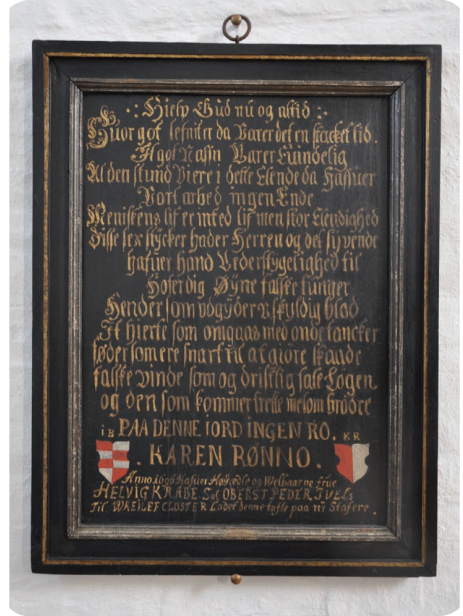 Hielp Gud nu og altid
Huor got lefnit er da Varer det en stacket tid.
A got Nafn Varer Euindelig
Al den stund Viere i dette Elende da hafuer
Vort arbed ingen Ende
Meniskens lif er inted lif men stor Elendighed
Disse sex stycker hader Herren og det syvende
hafuer hand Vederstygelighed til
Hoferdig Øyne falske tunger
Hender som udgyder uskyldig blod
It hierte som omgaas med onde tancker
føder som ere snart til at giøre skaade
falske vinde som og dristelig tale Løgen
og den som kommer trette melom brødre
IB PAA DENNE IORD INGEN RO. KR
. KAREN RØNNO .
Anno 1696 Hafuer Høyædle og Welbaarne frue
HELVIG KRABE Sal OBERST PEDER IVELS
Til WREILEF CLOSTER Ladet denne tafle paa ny Stafere.